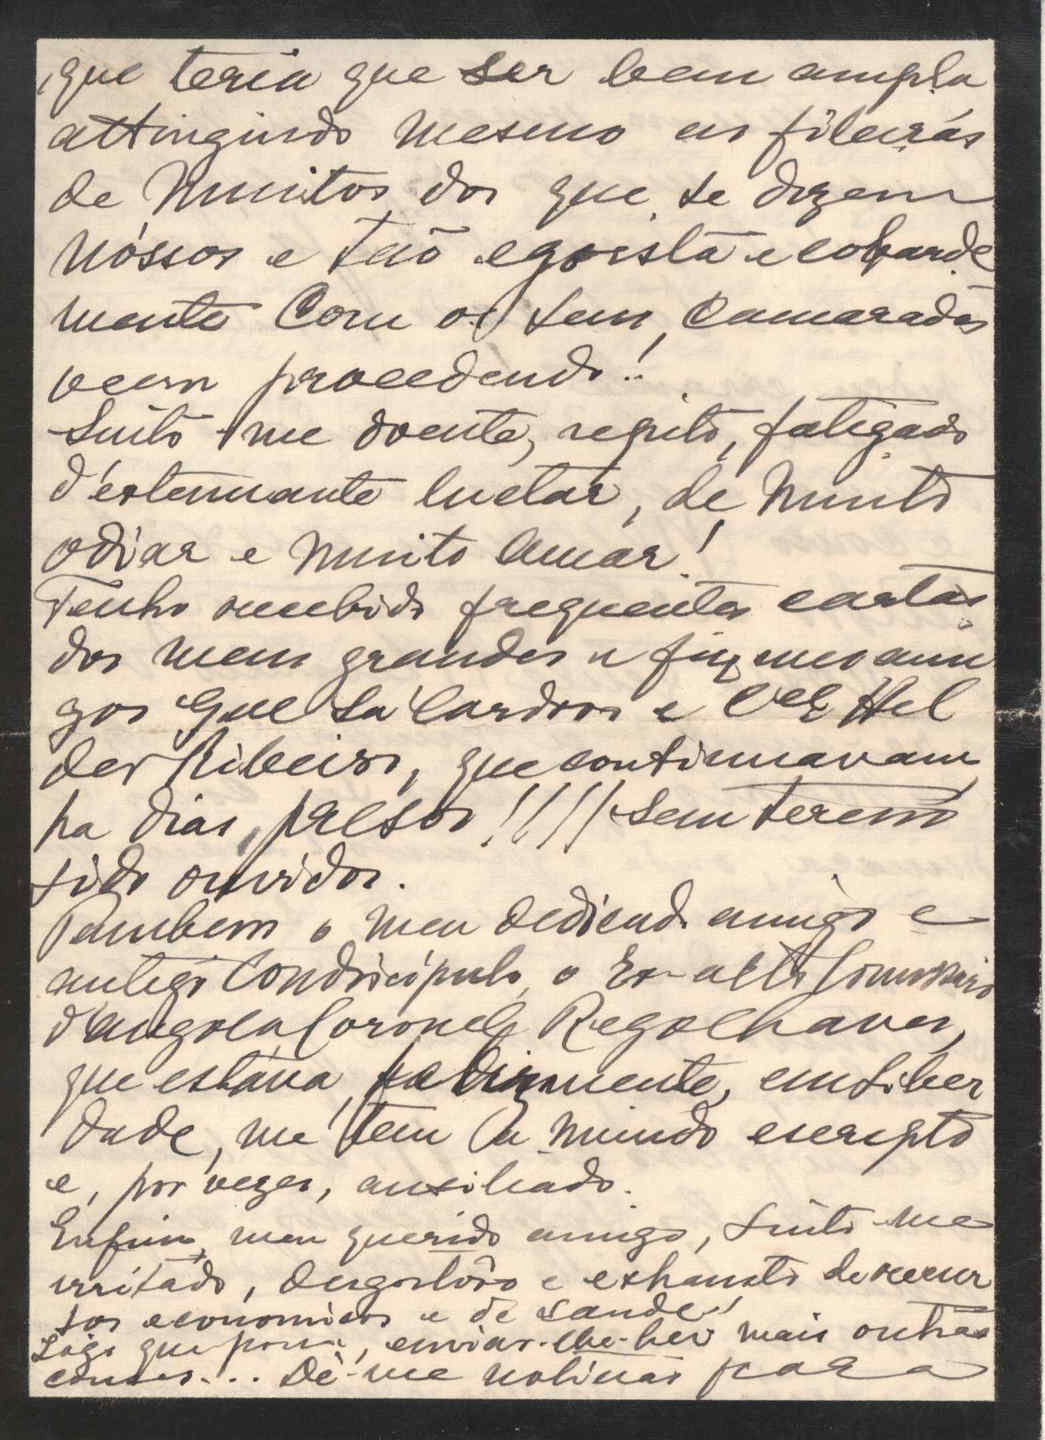 que teria que ser bem ampla
attingindo mesmo as fileiras
de muitos dos que se dizem
nóssos e tão egoista e cobarde
mente com os seus camaradas
veem procedendo!!
Sinto-me doente, repito, fatigado
d'extenuante luctar, de muito
odiar e muito amar!
Tenho recebido frequentes cartas
dos meus grandes e firmes ami
gos Gal Sá Cardoso e Cel Hel
der Ribeiro, que continuavam,
ha dias, presos!!!!! sem terem
sido ouvidos.
Tambem o meu dedicado amigo e
antigo condiscípulo, o Ex-alto Comissario
d'Angola, Coronel Rego Chaves,
que estáva, felizmente, em liber
dade, me tem a miudo escripto
e, por vezes, auxiliado.
Enfim, meu querido amigo, sinto-me
irritado, desgostôso e exhausto de recur
sos economicos e de saude!
Logo que possa, enviar-lhe-hei mais outras
coisas... Dê-me noticias para a